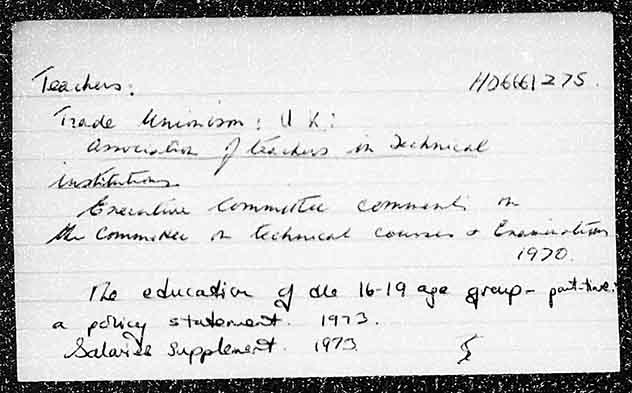 Teachers: HD6661 Z75.
Trade Unionism: U K:
Association of teachers in Technical
institutions
Executive Committee comments on
the Committee on technical courses & Examinations
1970.
The education of the 16-19 age group - part-time:
a policy statement. 1973.
Salaries Supplement. 1973